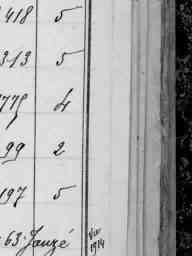 418 5
313 5
777 4
99 2
197 5
63. Janzé
Vu
1914